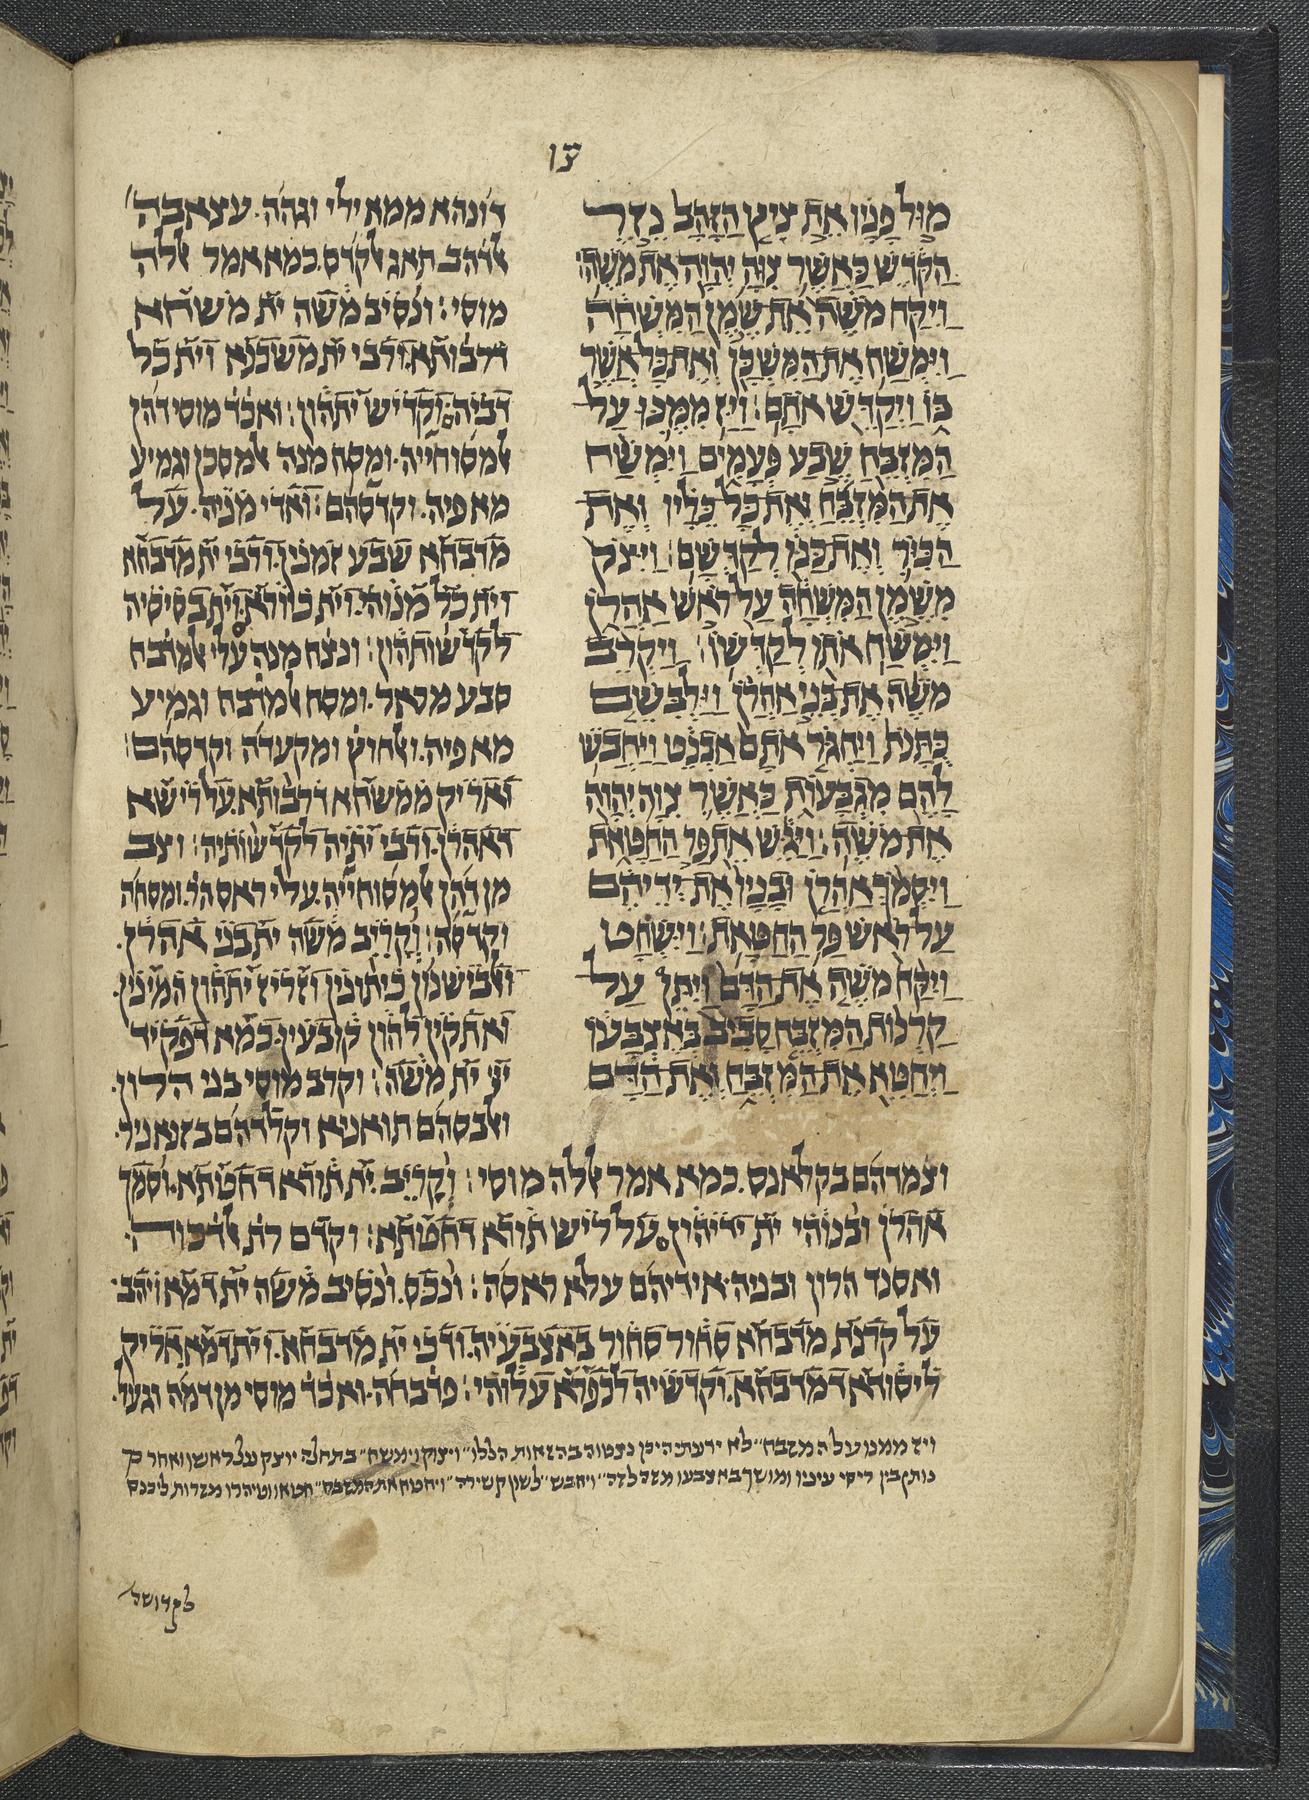 צו
מול פניו את ציץ הזהב נזר
הקדש כאשר צוה יהוה את משה׃
ויקח משה את שמן המשחה
וימשח את המשכן ואת כל אשר
בו ויקדש אתם׃ ויז ממנו על
המזבח שבע פעמים וימשח
את המזבח ואת כל כליו ואת
הכיר ואת כנו לקדשם׃ ויצק
משמן המשחה על ראש אהרן
וימשח אתו לקדשו׃ ויקרב
משה את בני אהרן וילבשם
כתנת ויחגר אתם אבנט ויחבש
להם מגבעות כאשר צוה יהוה
את משה׃ ויגש את פר החטאת
ויסמך אהרן ובניו את ידיהם
על ראש פר החטאת׃ וישחט
ויקח משה את הדם ויתן על
קרנות המזבח סביב באצבעו
ויחטא את המזבח ואת הדם
דונהא ממא ילי וגהה. עצאבה
ﭏדהב. תאג ﭏקדס. כמא אמר ﭏלה
מוסי׃ ונסיב משה ית משחא
דרבותא. ורבי ית משכנא וית כל
דביה. וקדיש יתהון׃ ואכד מוסי דהן
ﭏמסוחייה. ומסח מנה ﭏמסכן וגמיע
מא פיה. וקדסהם׃ ואדי מניה. על
מדבחא שבע זמנין. ורבי ית מדבחא
וית כל מנוהי. וית כיורא. וית בסיסיה
לקדשותהון׃ ונצח מנה עלי ﭏמדבח
סבע מראר. ומסח ﭏמדבח וגמיע
מא פיה. וﭏחוץ ומקעדה וקדסהם׃
ואריק ממשחא דרבותא. על רישא
דאהרן. ורבי יתיה לקדשותיה׃ וצב
מן דהן ﭏמסוחייה. עלי ראס הרו. ומסחה
וקדסה׃ וקריב משה ית בני אהרן.
וﭏבישנון כיתונין וזריז יתהון המינין.
ואתקין להון קובעין. כמא דפקיד
ייי ית משה׃ וקדב מוסי בני הרון.
וﭏבסהם תואניא וקלדהם בזנאניר.
וצמדהם בקלאנס. כמא אמר ﭏלה מוסי׃ וקריב. ית תורא דחטתא. וסמך
אהרן ובנוהי ית ידיהון. על ריש תורא דחטתא׃ וקדם רת ﭏדכוה.
ואסנד הרון ובניה אידיהם עלא ראסה׃ ונכס. ונסיב משה ית דמא ויהב
על קרנת מדבחא סחור סחור באצבעיה. ורבי ית מדבחא. וית דמא אריק
ליסודא דמדבחא. וקדשיה לכפרא עלוהי׃ פדבחה. ואכד מוסי מן דמה וגעל.
ויז ממנו על המזבח״ לא ידעתי היכן נצטוה בהזאות הללו״ ויצוק וימשח״ בתחלה יוצק על ראשו ואחר כך
נותן בין ריסי עיניו ומושך באצבעו מזה לזה״ ויחבש״ לשון קשירה״ ויחטא את המזבח״ חטאו וטיהרו מזרות ליכנס
לקדושה